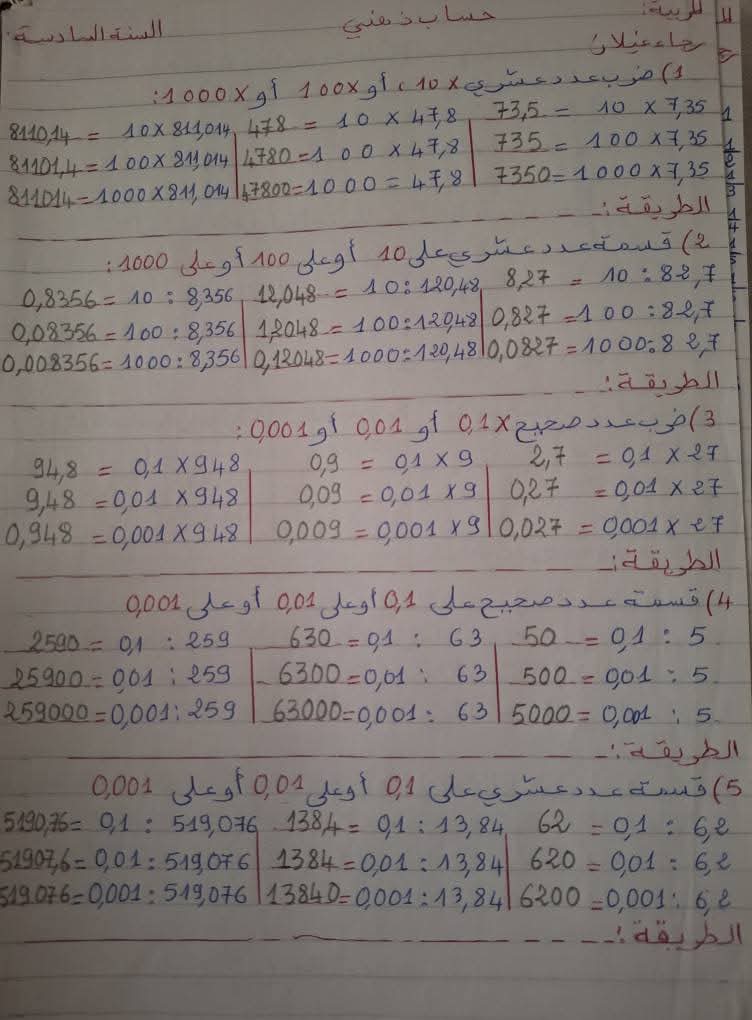 المربية: حساب ذهني السنة السادسة:
رجاء عيلان
1) ضرب عدد عشري × 10، أو × 100 أو × 1000:
7,35 × 10 = 73,5 | 47,8 × 10 = 478 | 811,014 × 10 = 8110,14
7,35 × 100 = 735 | 47,8 × 100 = 4780 | 811,014 × 100 = 81101,4
7,35 × 1000 = 7350 | 47,8 = 1000 = 47800 | 811,014 × 1000 = 811014
الطريقة:
2) قسمة عدد عشري على 10 أو على 100 أو على 1000:
82,7 : 10 = 8,27 | 120,48 : 10 = 12,048 | 8,356 : 10 = 0,8356
82,7 : 100 = 0,827 | 120,48 : 100 = 1,2048 | 8,356 : 100 = 0,08356
82,7 : 1000 = 0,0827 | 120,48 : 1000 = 0,12048 | 8,356 : 1000 = 0,008356
الطريقة:
3) ضرب عدد صحيح × 0,1 أو 0,01 أو 0,001:
27 × 0,1 = 2,7 | 9 × 0,1 = 0,9 | 948 × 0,1 = 94,8
27 × 0,01 = 0,27 | 9 × 0,01 = 0,09 | 948 × 0,01 = 9,48
27 × 0,001 = 0,027 | 9 × 0,001 = 0,009 | 948 × 0,001 = 0,948
الطريقة:
4) قسمة عدد صحيح على 0,1 أو على 0,01 أو على 0,001
5 : 0,1 = 50 | 63 : 0,1 = 630 | 259 : 0,1 = 2590
5 : 0,01 = 500 | 63 : 0,01 = 6300 | 259 : 0,01 = 25900
5 : 0,001 = 5000 | 63 : 0,001 = 63000 | 259 : 0,001 = 259000
الطريقة:
5) قسمة عدد عشري على 0,1 أو على 0,01 أو على 0,001
6,2 : 0,1 = 62 | 13,84 : 0,1 = 138,4 | 519,076 : 0,1 = 5190,76
6,2 : 0,01 = 620 | 13,84 : 0,01 = 1384 | 519,076 : 0,01 = 51907,6
6,2 : 0,001 = 6200 | 13,84 : 0,001 = 13840 | 519,076 : 0,001 = 519076
الطريقة: